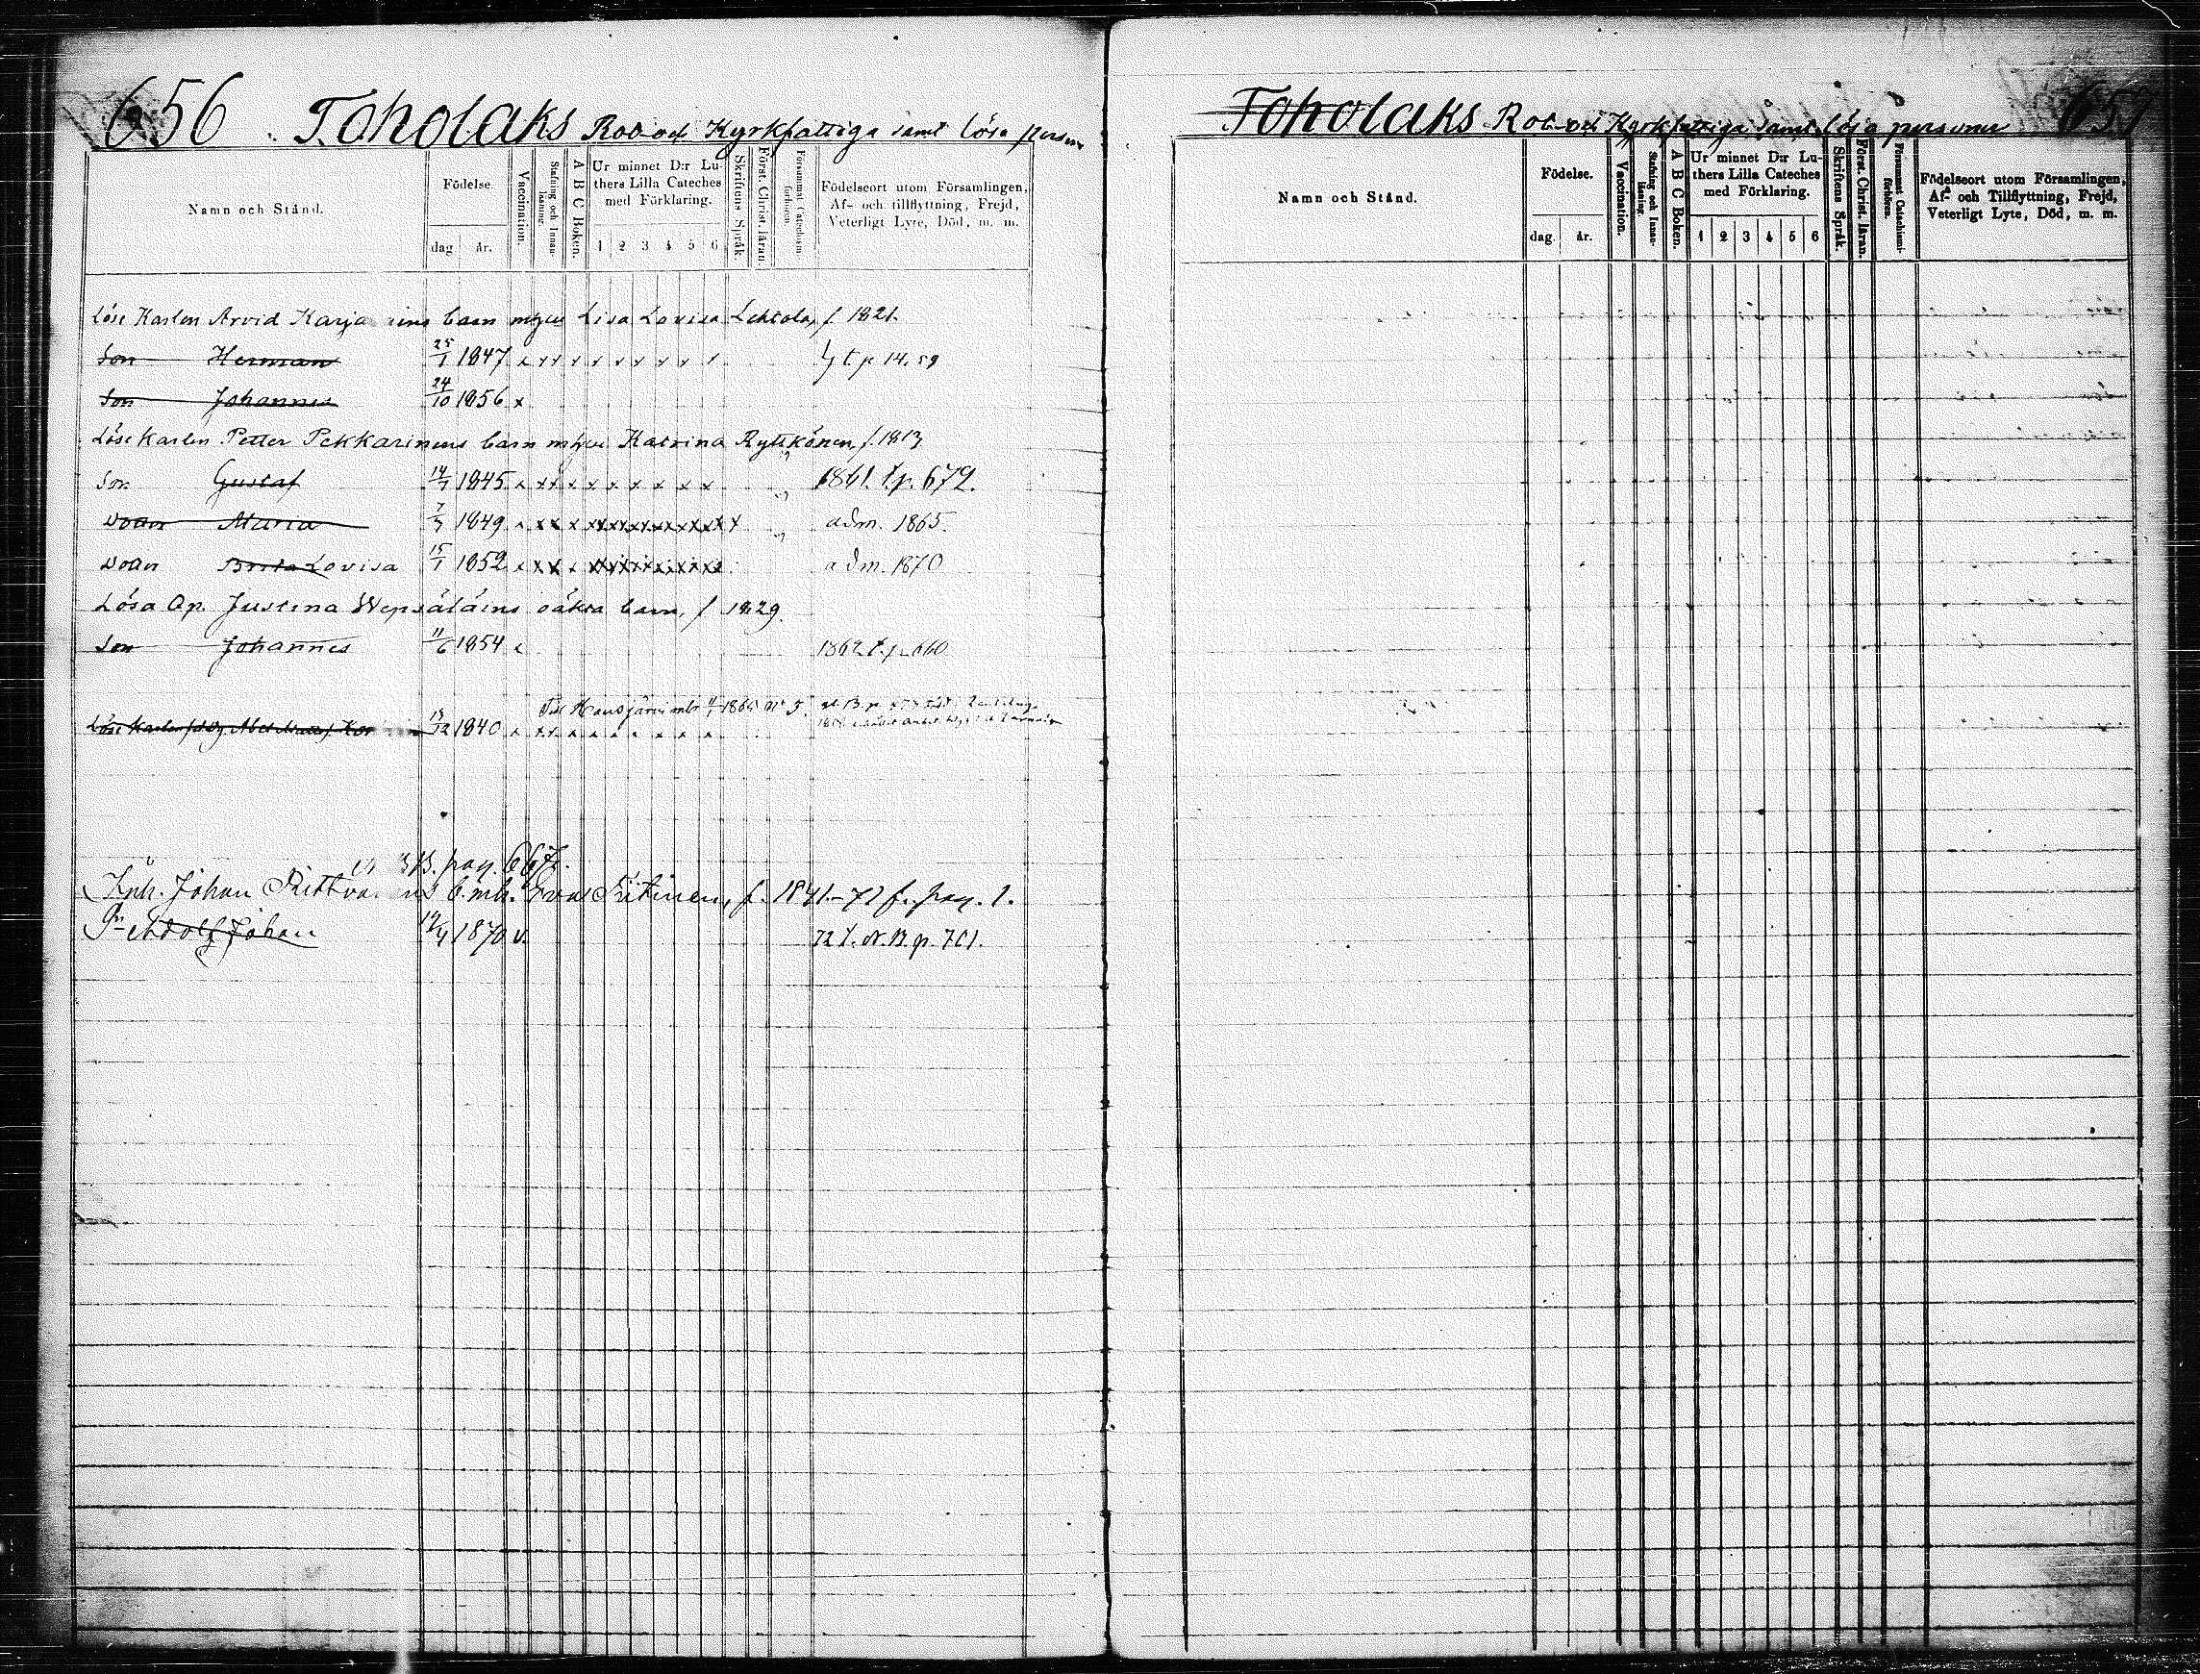 656 Toholaks Rot och Kyrkfattiga samt lösa person
Namn och Stånd.
Födelse
dag år.
Vaccination.
Stafning och Innanläsning.
A B C Boken.
Ur minnet D:r Luthers Lilla Cateches med Förklaring.
1 2 3 4 5 6
Skriftens Språk.
Först. Christ. läran.
Försummat Catechismiförhören.
Födelseort utom Församlingen,
Af- och tillflyttning, Frejd,
Veterligt Lyte, Död, m. m.
Löse Karlen Arvid Karja ins barn m hu Lisa Lovisa Lehtola, f. 1821.
Son Herman 25/1 1847 t. p. 14. 59
Son Johannes 24/10 1856 x
Löse Karlen Petter Pekkarinens barn m hu Katrina Rytkönen, f. 1813
Son Gustaf 14/7 1845 1861. t. p. 679.
Doter Maria 7/7 1849 adm. 1865.
Doter Brita Lovisa 15/1 1852 adm. 1870
Lösa Qp. Justina Wepsäläins oäkta barn, f 1829.
Son Johannes 11/6 1854 1862 t. p. 660
Till Hausjärvi 1866 No 5.
Löse Karlen 13/12 1840
B. pag. 667.
Inh. Johan b. m. h. Eva f. 1841. -71 fr. pag. 1.
Gn Adolf Johan 19/4 1870 v. 72 t. N. B. p. 701.
Toholaks Rot och Kyrkfattiga samt lösa personer 657
Namn och Stånd.
Födelse.
dag år.
Vaccination.
Stafning och Innanläsning.
A B C Boken.
Ur minnet D:r Luthers Lilla Cateches med Förklaring.
1 2 3 4 5 6
Skriftens Språk.
Först. Christ. läran.
Försummat Catechismiförhören.
Födelseort utom Församlingen,
Af- och Tillflyttning, Frejd,
Veterligt Lyte, Död, m. m.